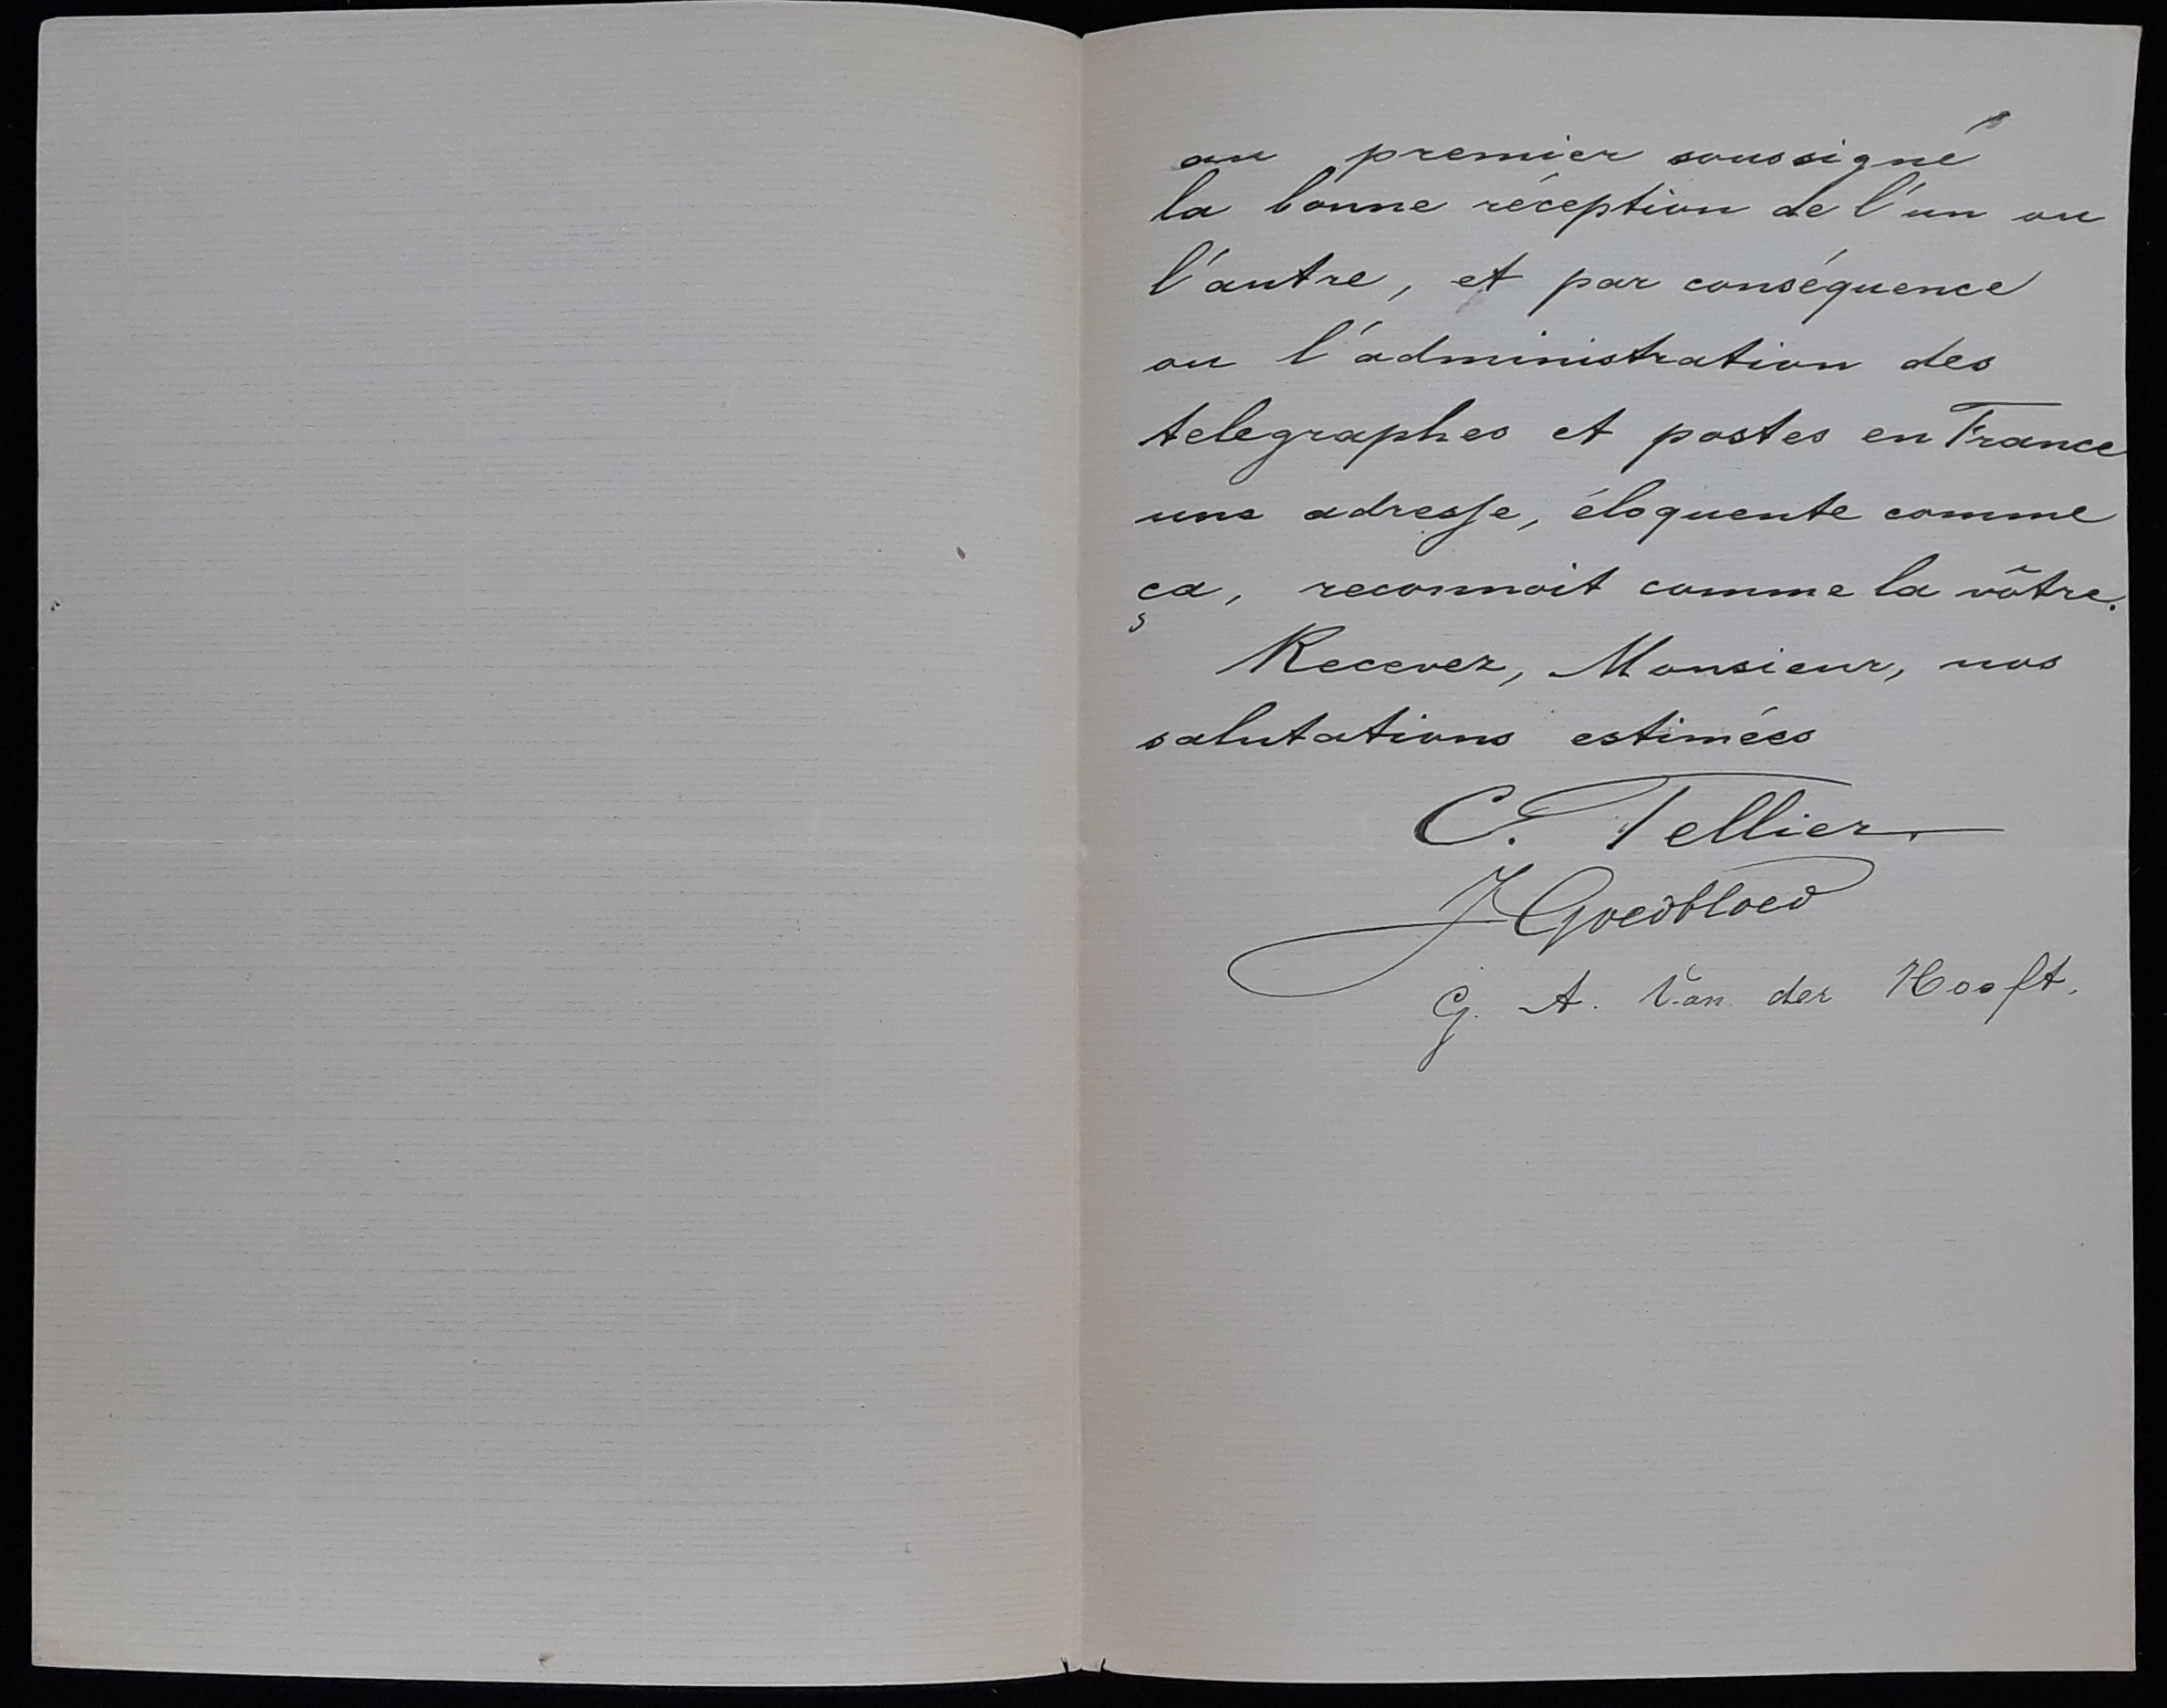 au premier soussigné
la bonne réception de l'un ou
l'autre, et par conséquence
ou l'administration des
telegraphes et postes en France
une adresse, éloquente comme
ça, reconnoit comme la vôtre.
Recevez, Monsieur, nos
salutations estimées
C. Tellier.
J Goedbloed
G. A. Van der Hooft.